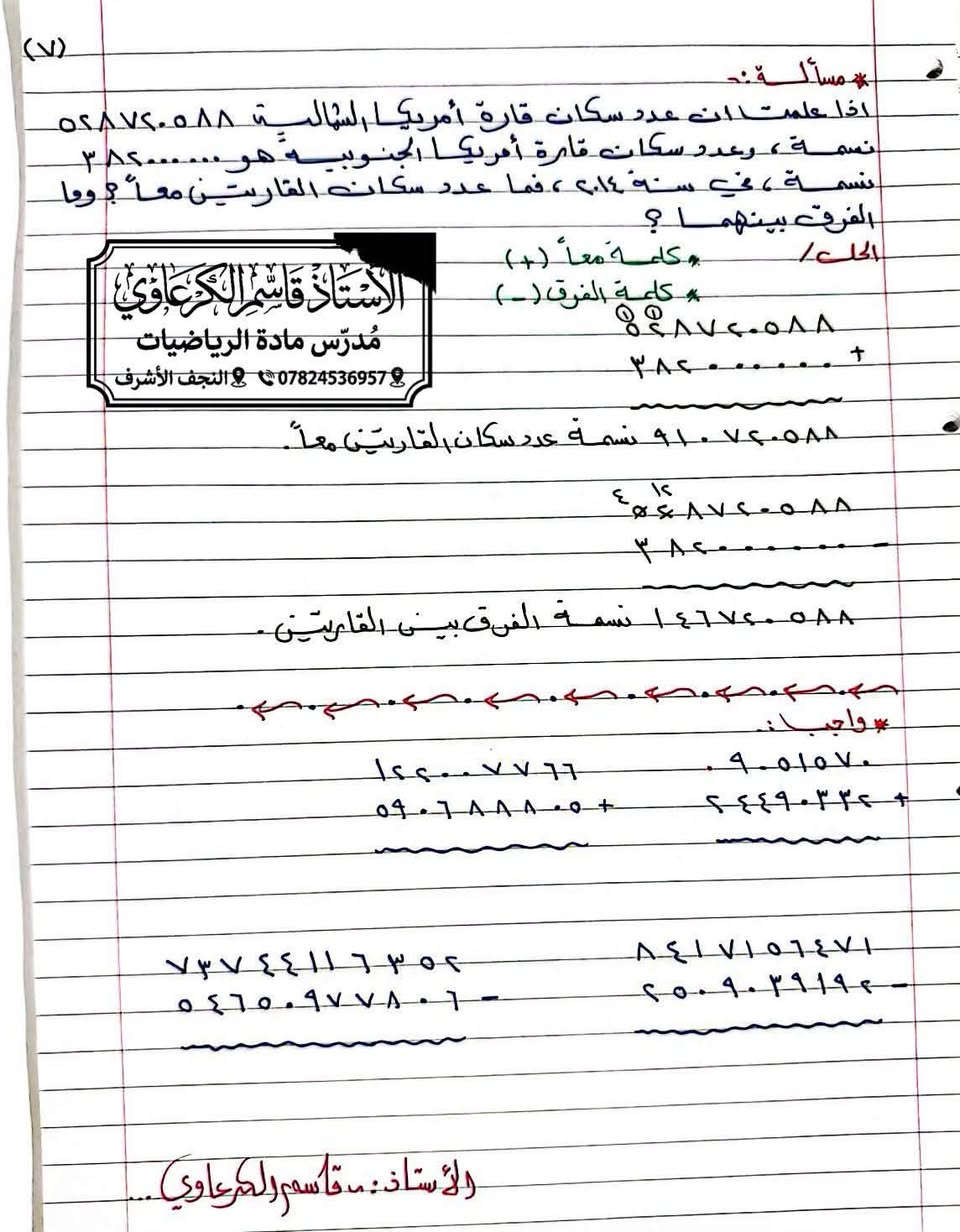 (٧)
* مسألة :-
اذا علمت ان عدد سكان قارة أمريكا الشمالية ٥٢٨٧٢٠٥٨٨
نسمة ، وعدد سكان قارة أمريكا الجنوبية هو ٣٨٢٠٠٠٠٠٠
نسمة ، في سنة ٢٠١٤ ، فما عدد سكان القارتين معاً ؟ وما
الفرق بينهما ؟
الحل /
* كلمة معاً (+)
* كلمة الفرق (-)
الأستاذ قاسم الكرعاوي
مُدرّس مادة الرياضيات
07824536957 النجف الأشرف
١ ١
٥٢٨٧٢٠٥٨٨
٣٨٢٠٠٠٠٠٠ +
٩١٠٧٢٠٥٨٨ نسمة عدد سكان القارتين معاً.
٤ ١٢
٥٢٨٧٢٠٥٨٨
٣٨٢٠٠٠٠٠٠ -
١٤٦٧٢٠٥٨٨ نسمة الفرق بين القارتين .
* واجب :.
٠٩٠٥١٥٧٠
٢٤٤٩٠٣٣٢ +
١٢٢٠٠٧٧٦٦
٥٩٠٦٨٨٨٠٥ +
٨٤١٧١٥٦٤٧١
٢٥٠٩٠٣٩١٩٢ -
٧٣٧٤٤١١٦٣٥٢
٥٤٦٥٠٩٧٧٨٠٦ -
الأستاذ :- قاسم الكرعاوي ...